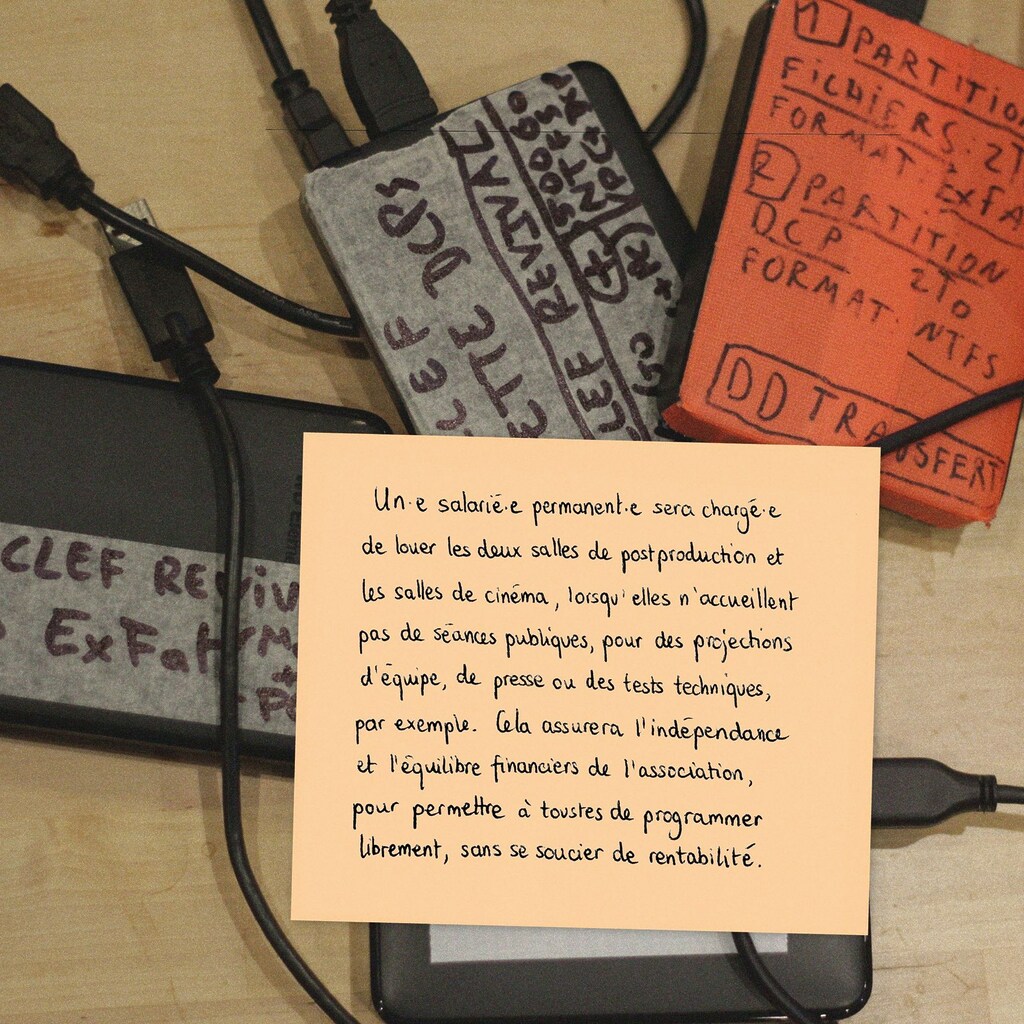 1 PARTITION
FICHIERS: 2T
FORMAT: ExFA
2 PARTITION
DCP 2To
FORMAT: NTFS
DD TRANSFERT
LEF DCPS
ETIE
CLEF REVIVAL
500Go
NTFS
CLEF REVIV
ExFat
Un·e salarié·e permanent·e sera chargé·e
de louer les deux salles de postproduction et
les salles de cinéma, lorsqu'elles n'accueillent
pas de séances publiques, pour des projections
d'équipe, de presse ou des tests techniques,
par exemple. Cela assurera l'indépendance
et l'équilibre financiers de l'association,
pour permettre à toustes de programmer
librement, sans se soucier de rentabilité.